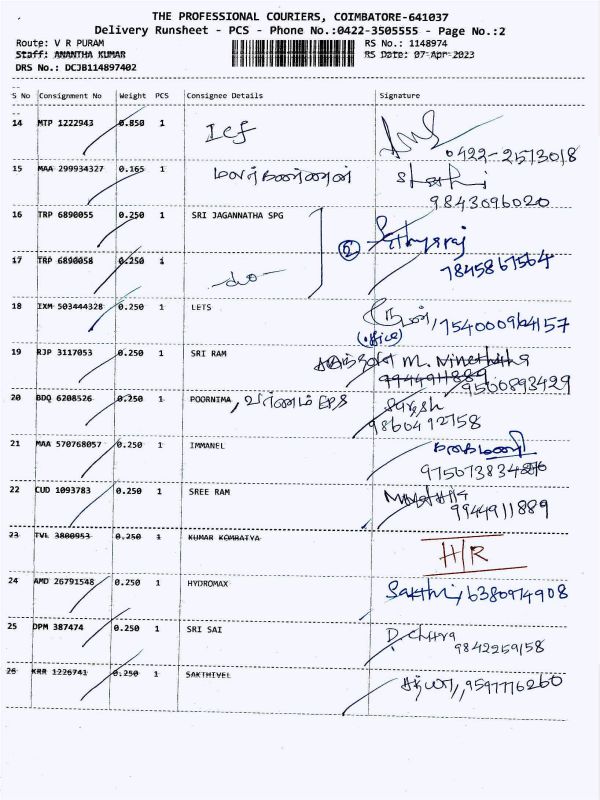 THE PROFESSIONAL COURIERS, COIMBATORE-641037
Delivery Runsheet - PCS - Phone No.:0422-3505555 - Page No.:2
Route: V R PURAM RS No.: 1148974
Staff: ANANTHA KUMAR RS Date: 07-Apr-2023
DRS No.: DCJB114897402
S No Consignment No Weight PCS Consignee Details Signature
14 MTP 1222943 0.850 1 Icf
0422-2573018
15 MAA 299934327 0.165 1 மலர்கண்ணன்
9843096020
16 TRP 6890055 0.250 1 SRI JAGANNATHA SPG
② Sathyaraj
17 TRP 6890058 0.250 1 -do- 7845867564
18 IXM 503444328 0.250 1 LETS
(office)
19 RJP 3117053 0.250 1 SRI RAM M.
9944911889 9560893429
20 BDQ 6208526 0.250 1 POORNIMA, EPS
9860492758
21 MAA 570768057 0.250 1 IMMANEL
22 CUD 1093783 0.250 1 SREE RAM
9944911889
23 TVL 3800953 0.250 1 KUMAR KOMBATYA H/R
24 AMD 26791548 0.250 1 HYDROMAX Sakthi, 6380974908
25 DPM 387474 0.250 1 SRI SAI D. Chitra
9842259158
26 KRR 1226741 0.250 1 SAKTHIVEL சத்யா, 9597776260